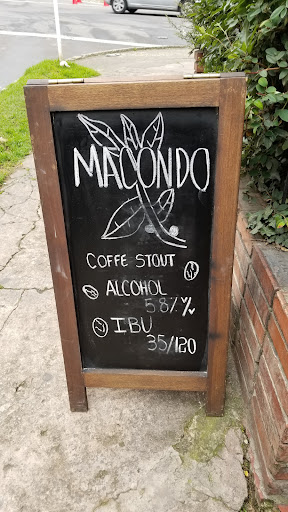 MACONDO
COFFE STOUT
ALCOHOL
5.8% %
IBU
35/120